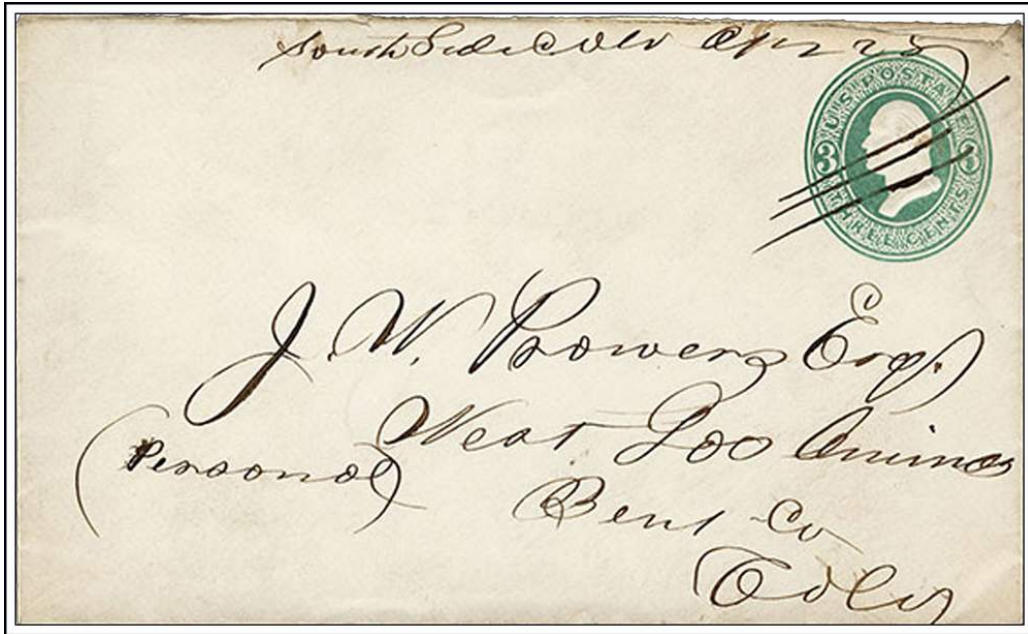 South Side Colo Apr 28
U.S. POSTAGE
3 3
THREE CENTS
J. W. Prowers Esq.
West Las Animas
(Personal)
Bent Co
Colo